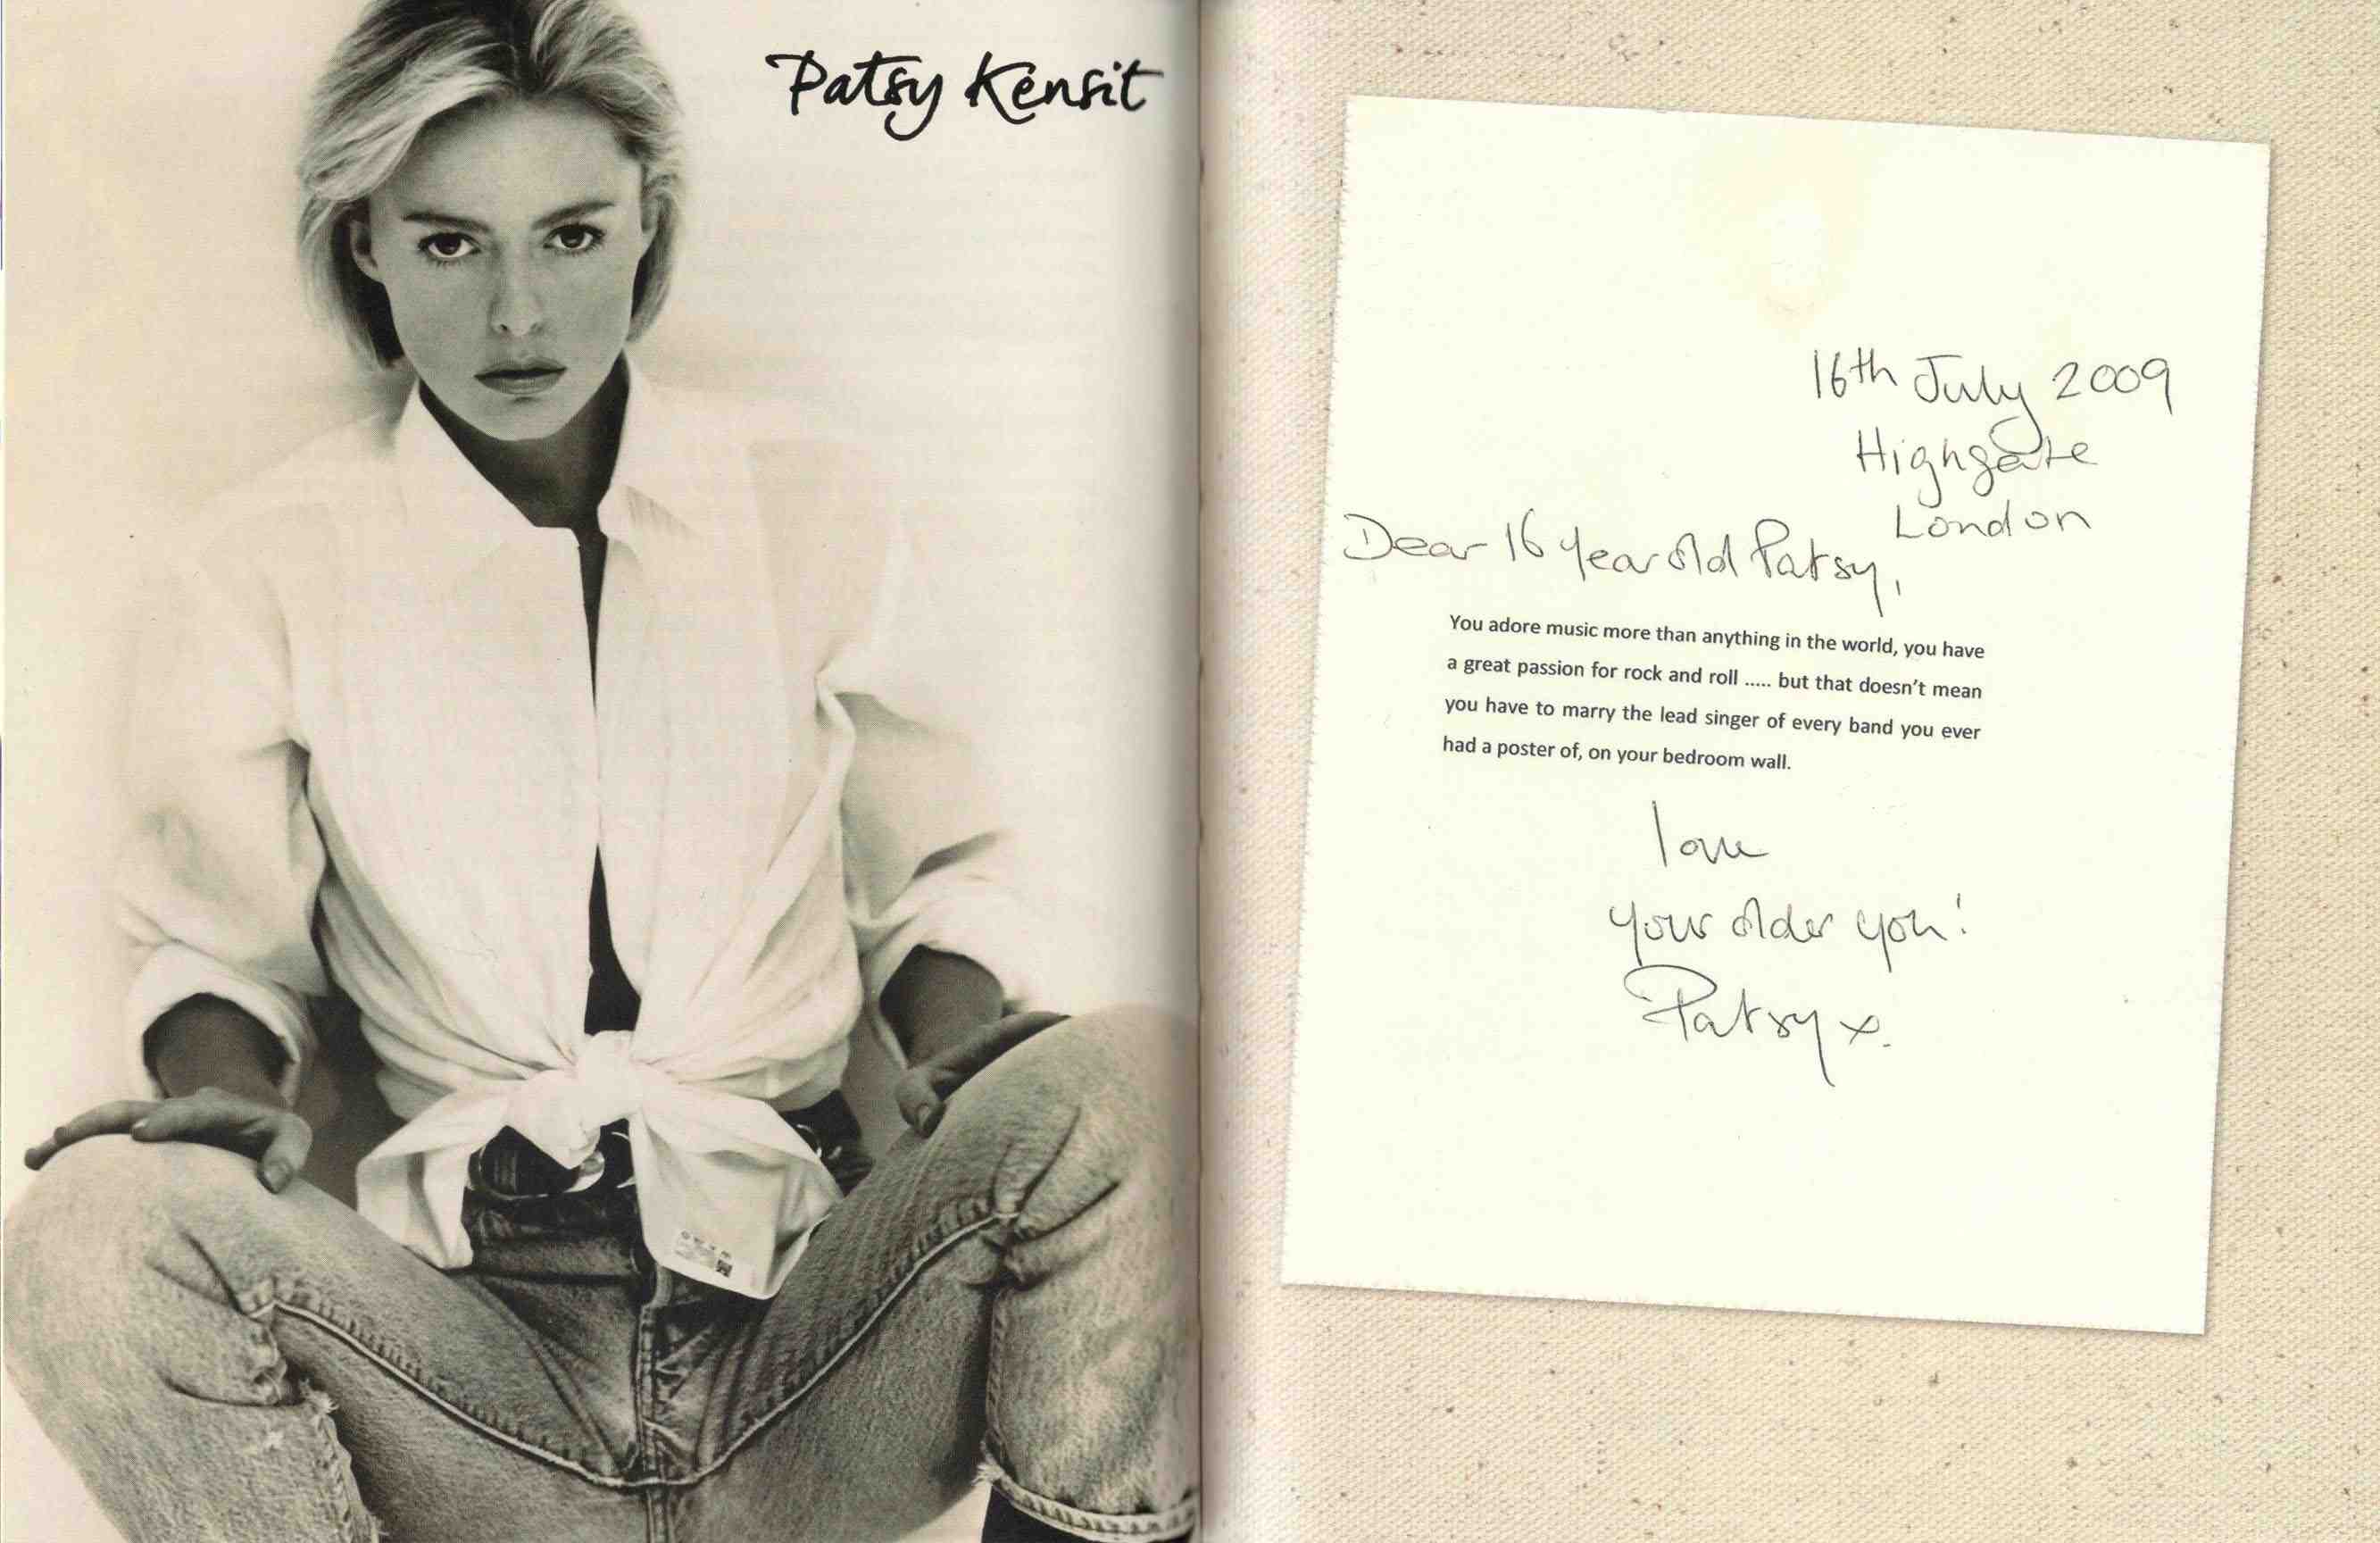 Patsy Kensit
16th July 2009
Highgate
London
Dear 16 year old Patsy,
You adore music more than anything in the world, you have
a great passion for rock and roll ..... but that doesn't mean
you have to marry the lead singer of every band you ever
had a poster of, on your bedroom wall.
love
your older you!
Patsy x.